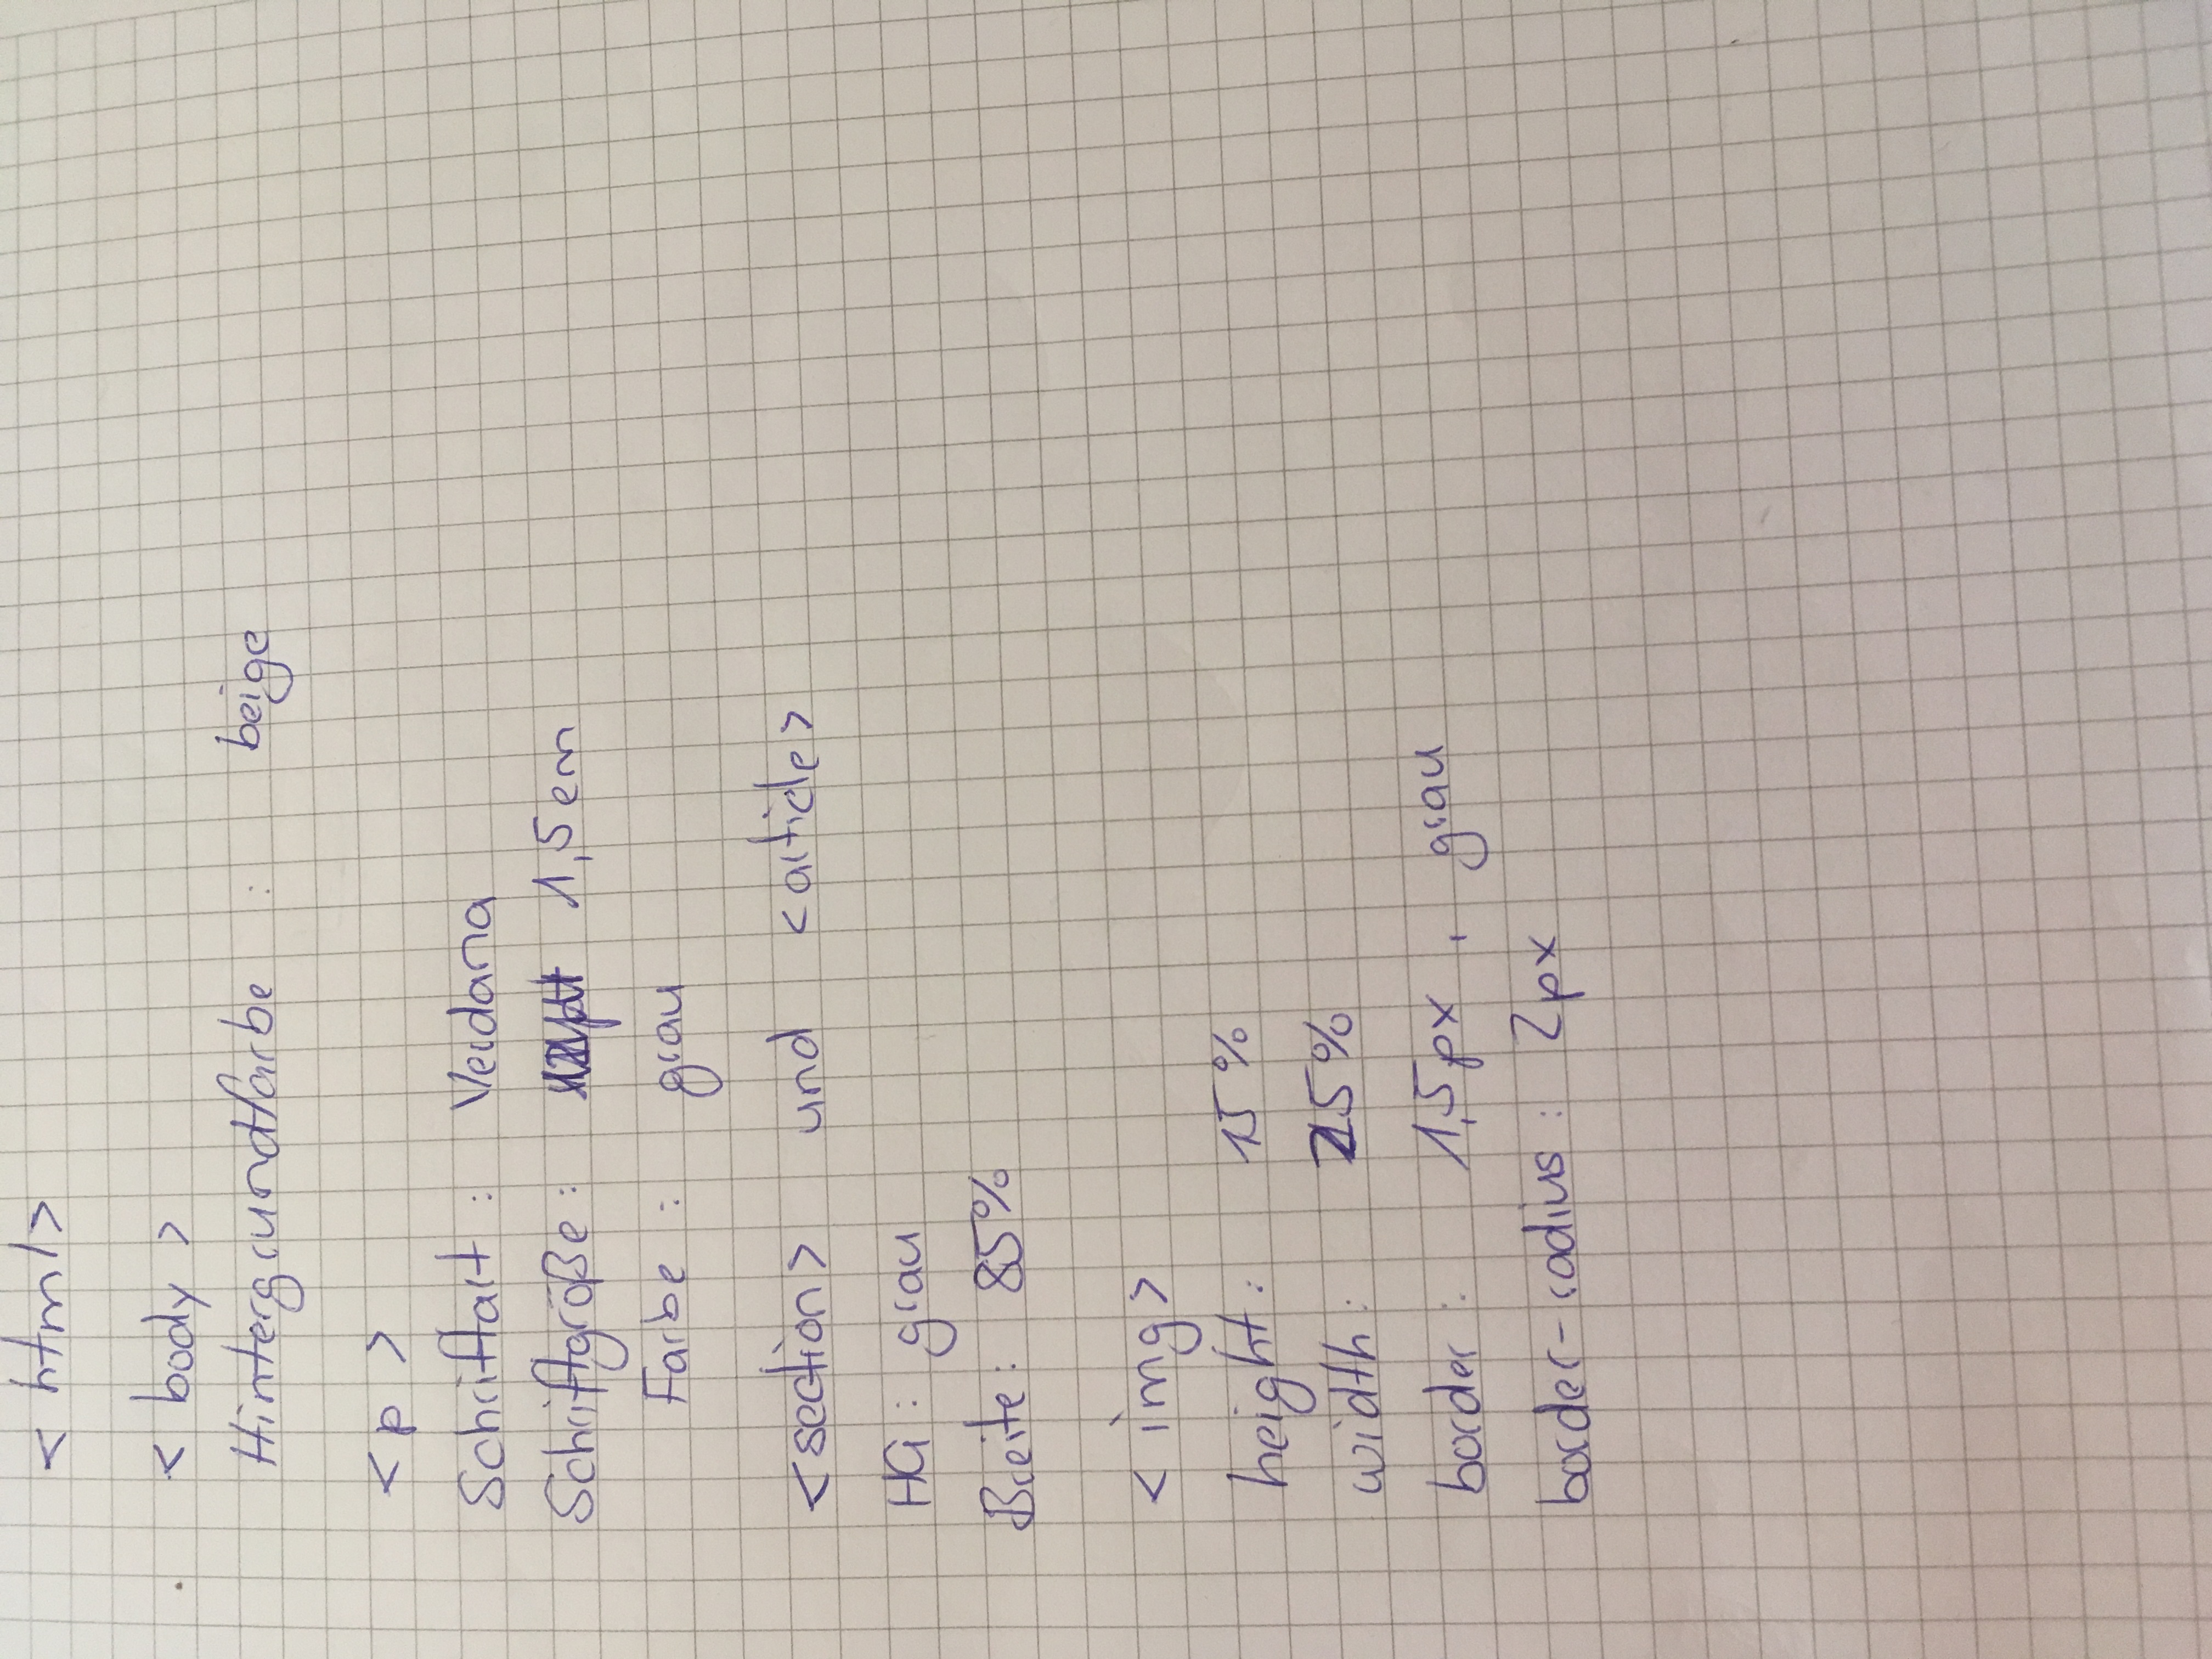 < html>
< body >
Hintergrundfarbe : beige
< p >
Schriftart : Verdana
Schriftgröße : 1,5em
Farbe : grau
<section> und <article>
HG : grau
Breite : 85%
< img>
height : 15%
width : 25%
border : 1,5px , grau
border-radius : 2px